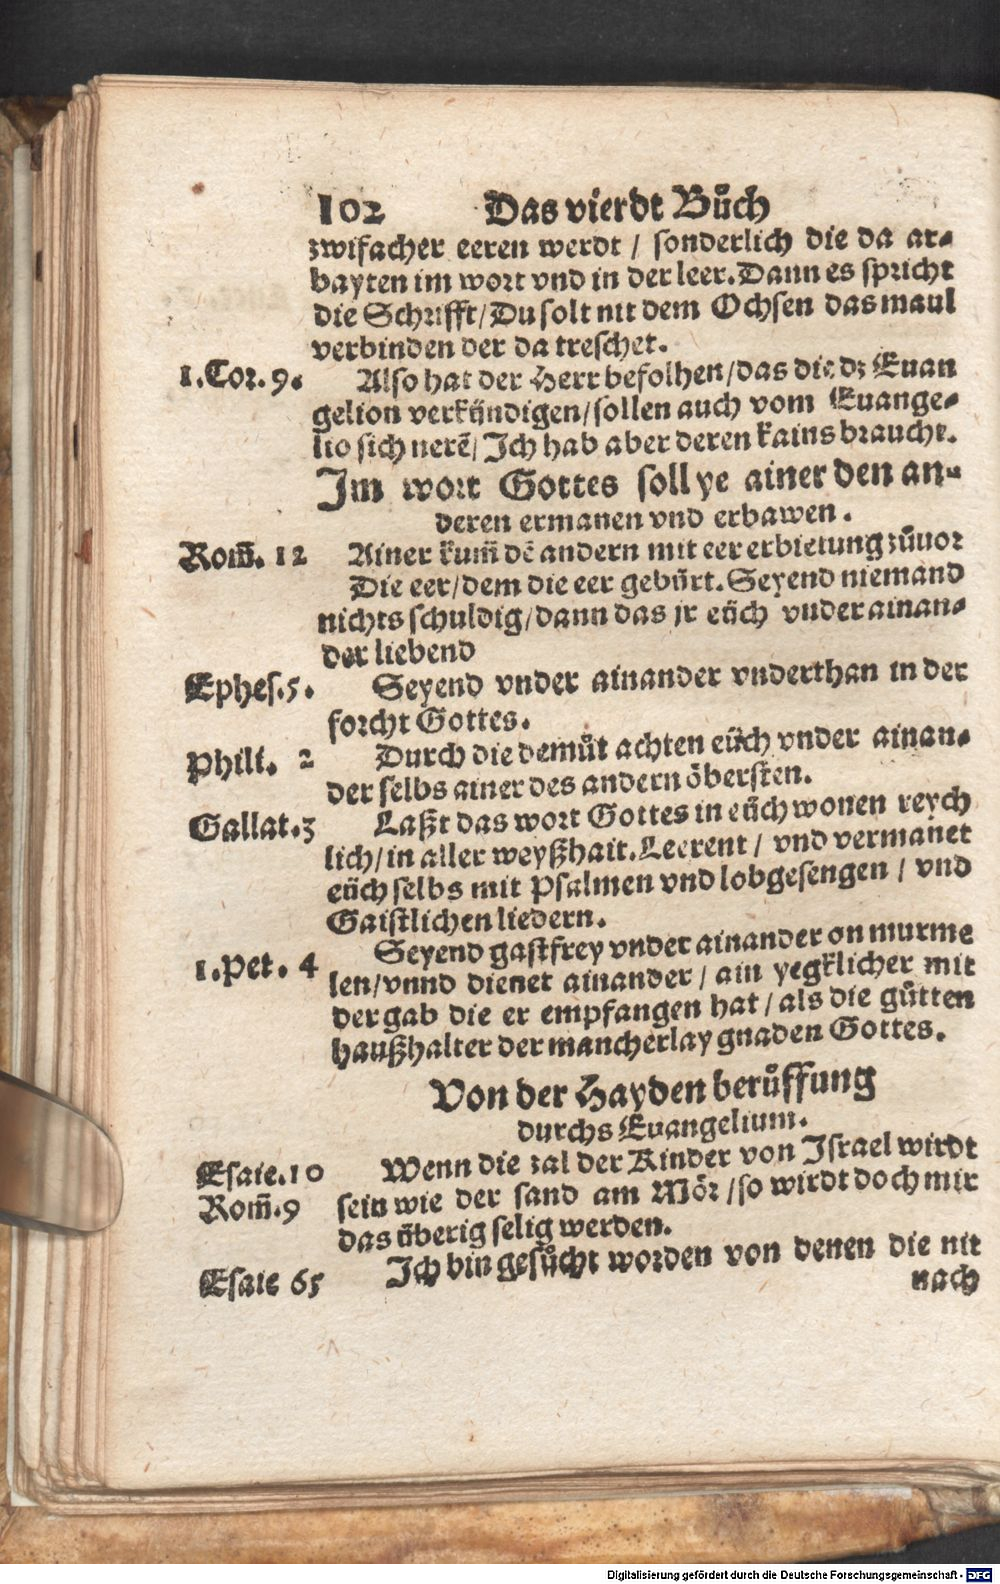 102 Das vierdt Bůch
zwifacher eeren werdt / sonderlich die da ar-
bayten im wort vnd in der leer. Dann es spricht
die Schrifft / Du solt nit dem Ochsen das maul
verbinden der da treschet.
1. Cor. 9. Also hat der Herr befolhen / das die dz Euan
gelion verkündigen / sollen auch vom Euange-
lio sich nerẽ / Ich hab aber deren kains braucht.
Im wort Gottes soll ye ainer den an-
deren ermanen vnd erbawen.
Rom̃. 12 Ainer kum̃ dẽ andern mit eer erbietung zůuor
Die eer / dem die eer gebürt. Seyend niemand
nichts schuldig / dann das jr eüch vnder ainan-
der liebend
Ephes. 5. Seyend vnder ainander vnderthan in der
forcht Gottes.
Phili. 2 Durch die demůt achten eüch vnder ainan-
der selbs ainer des andern öbersten.
Gallat. 3 Laßt das wort Gottes in eüch wonen reych
lich / in aller weyßhait. Leerent / vnd vermanet
eüch selbs mit Psalmen vnd lobgesengen / vnd
Gaistlichen liedern.
1. Pet. 4 Seyend gastfrey vnder ainander on murme
len / vnnd dienet ainander / ain yegklicher mit
der gab die er empfangen hat / als die gůtten
haußhalter der mancherlay gnaden Gottes.
Von der Hayden berůffung
durchs Euangelium.
Esaie. 10 Wenn die zal der Kinder von Israel wirdt
Rom̃. 9 sein wie der sand am Mör / so wirdt doch mir
das überig selig werden.
Esaie 65 Ich bin gesůcht worden von denen die nit
nach
Digitalisierung gefördert durch die Deutsche Forschungsgemeinschaft - DFG